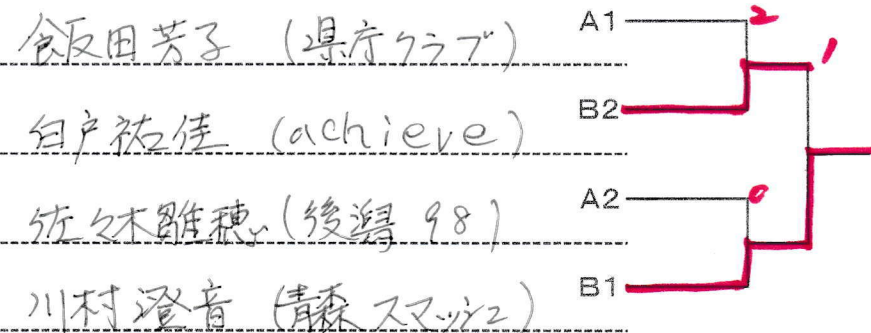 飯田芳子 (県庁クラブ) A1 2
1
白戸祐佳 (achieve) B2
佐々木雛穂 (後潟 98) A2 0
川村澄音 (青森スマッシュ) B1